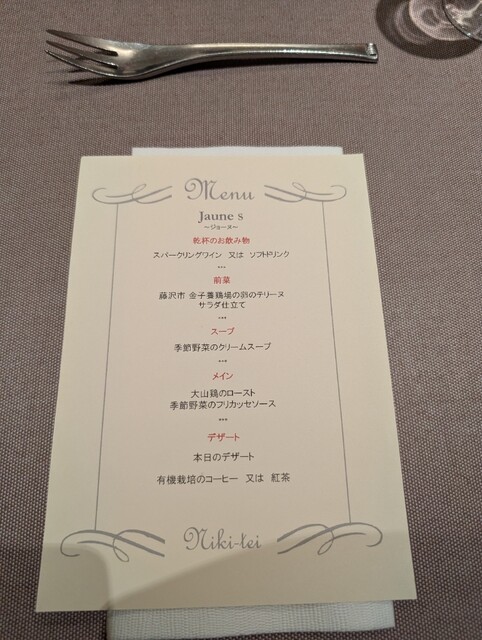 Menu
Jaune s
～ジョーヌ～
乾杯のお飲み物
スパークリングワイン 又は ソフトドリンク
***
前菜
藤沢市 金子養鶏場の卵のテリーヌ
サラダ仕立て
***
スープ
季節野菜のクリームスープ
***
メイン
大山鶏のロースト
季節野菜のフリカッセソース
***
デザート
本日のデザート
有機栽培のコーヒー 又は 紅茶
Niki-tei